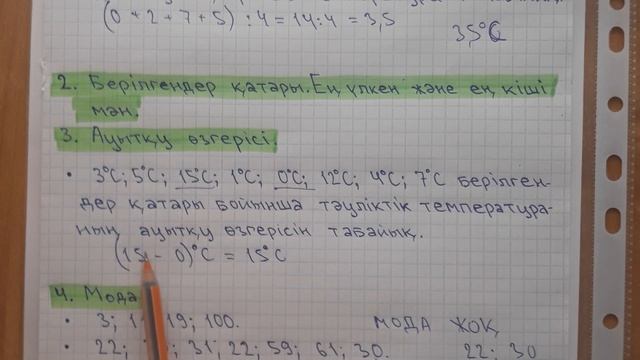 (0 + 2 + 7 + 5) : 4 = 14 : 4 = 3,5
3,5°C
2. Берілгендер қатары. Ең үлкен және ең кіші
мән.
3. Ауытқу өзгерісі.
• 3°C; 5°C; 15°C; 1°C; 0°C; 12°C; 4°C; 7°C берілген-
дер қатары бойынша тәуліктік температура-
ның ауытқу өзгерісін табайық.
(15 - 0)°C = 15°C
4. Мода
• 3; 19; 100. мода жоқ
• 22; 31; 22; 59; 61; 30. 22; 30